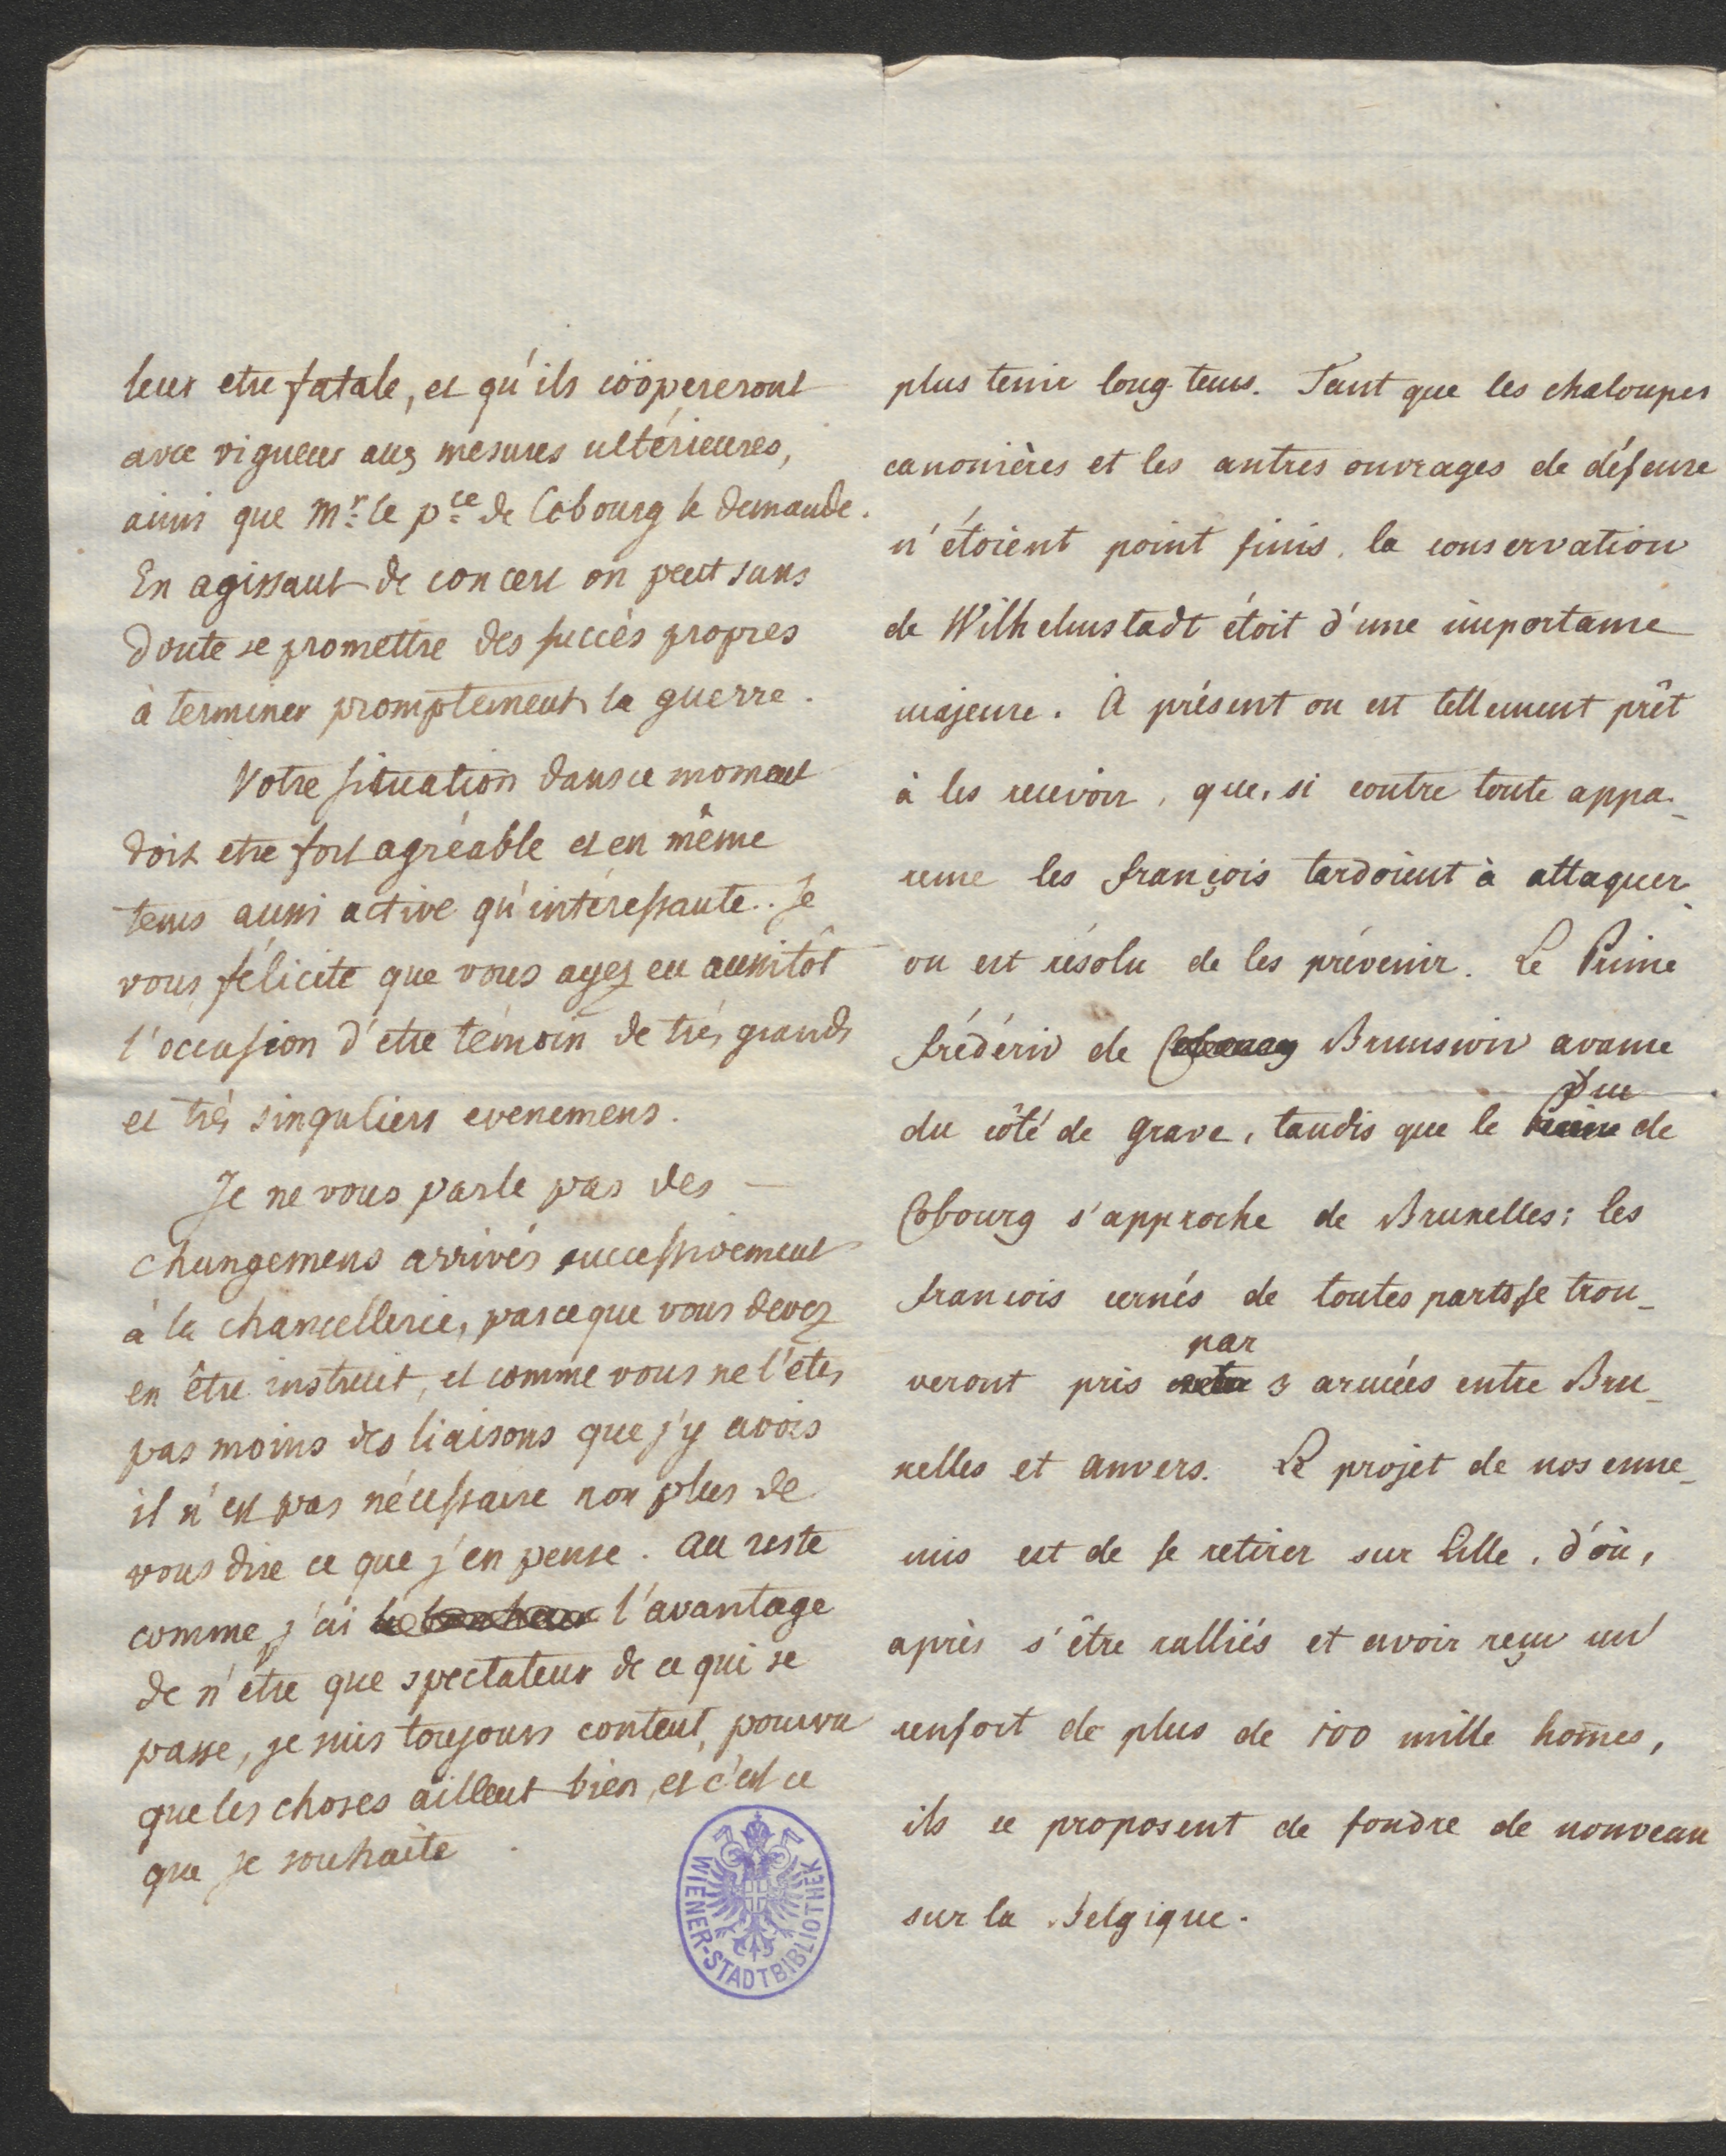 leur etre fatale, et qu'ils coöpereront
avec vigueur aux mesures ultérieures,
ainsi que Mr. le pce. de Cobourg le demande.
En agissant de concert on peut sans
doute se promettre des succès propres
à terminer promptement la guerre.
Votre situation dans ce moment
doit etre fort agréable et en même
tems aussi active qu'intéressante. Je
vous félicite que vous ayez eu aussitôt
l'occasion d'etre témoin de très grands
et très singuliers evenemens.
Je ne vous parle pas des
changemens arrivés successivement
à la chancellerie, parceque vous devez
en être instruit, et comme vous ne l'êtes
pas moins des liaisons que j'y avois
il n'est pas nécessaire non plus de
vous dire ce que j'en pense. Au reste
comme j'ai le bonheur l'avantage
de n'etre que spectateur de ce qui se
passe, je suis toujours content, pourvu
que les choses aillent bien, et c'est ce
que je souhaite.
WIENER-STADTBIBLIOTHEK
plus tenir long-tems. Tant que les chaloupes
canonières et les autres ouvrages de défense
n'étoient point finis, la conservation
de Wilhelmstadt étoit d'une importance
majeure. À présent on est tellement prêt
à les recevoir, que, si contre toute appa-
rence les françois tardoient à attaquer,
on est résolu de les prévenir. Le Prince
frédéric de Cobourg Brunswic avance
du côté de Grave, tandis que le Prince Duc de
Cobourg s'approche de Bruxelles; les
francois cernés de toutes parts se trou-
veront pris par 3 armées entre Bru-
xelles et Anvers. Le projet de nos enne-
mis est de se retirer sur Lille, d'où,
après s'être ralliés et avoir reçu un
renfort de plus de 100 mille hom̄es,
ils se proposent de fondre de nouveau
sur la Belgique.